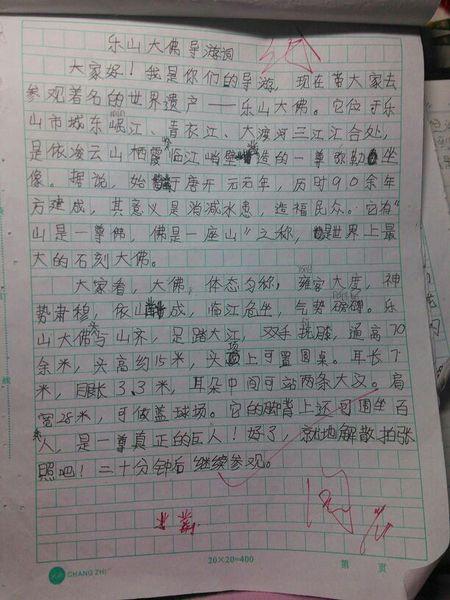 乐山大佛导游词
大家好！我是你们的导游，现在带大家去
参观著名的世界遗产——乐山大佛。它位于乐
山市城东岷江、青衣江、大渡河三江汇合处，
是依凌云山栖霞临江峭壁造的一尊弥勒坐
像。据说，始于唐开元元年，历时90余年
方建成，其意义是消减水患，造福民众。它有"
山是一尊佛，佛是一座山"之称，是世界上最
大的石刻大佛。
大家看，大佛，体态匀称，雍容大度，神
势肃穆，依山成，临江危坐，气势磅礴。乐
山大佛头与山齐，足踏大江，双手抚膝，通高70
余米，头高约15米，头顶上可置圆桌。耳长7
米，眼长3.3米，耳朵中间可站两条大汉。肩
宽28米，可做盖球场。它的脚背上还可围坐百
人，是一尊真正的巨人！好了，就地解散拍张
照吧！二十分钟后继续参观。
20×20=400
CHANG ZHI
第 页